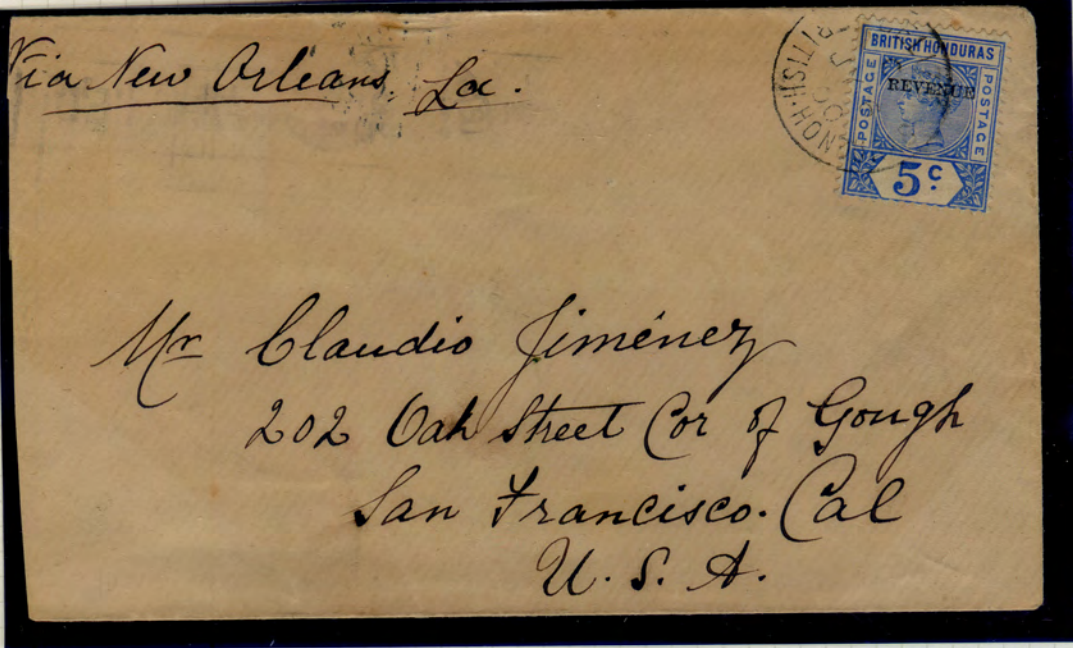 Via New Orleans. La.
BRITISH HONDURAS
POSTAGE
REVENUE
POSTAGE
5c.
Mr Claudio Jiménez
202 Oak Street Cor of Gough
San Francisco. Cal
U. S. A.